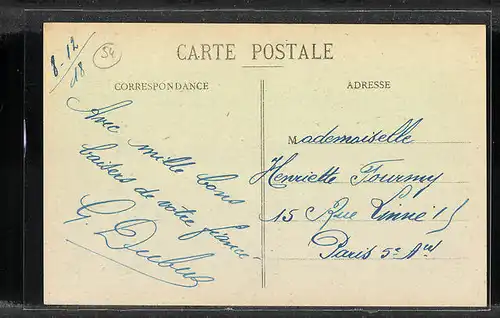 8-12
18
54
CARTE POSTALE
CORRESPONDANCE
ADRESSE
Avec mille bons
baisers de votre fiancé
G. Dubus
Mademoiselle
Henriette Fourmy
15 Rue Linné 15
Paris 5e Arr